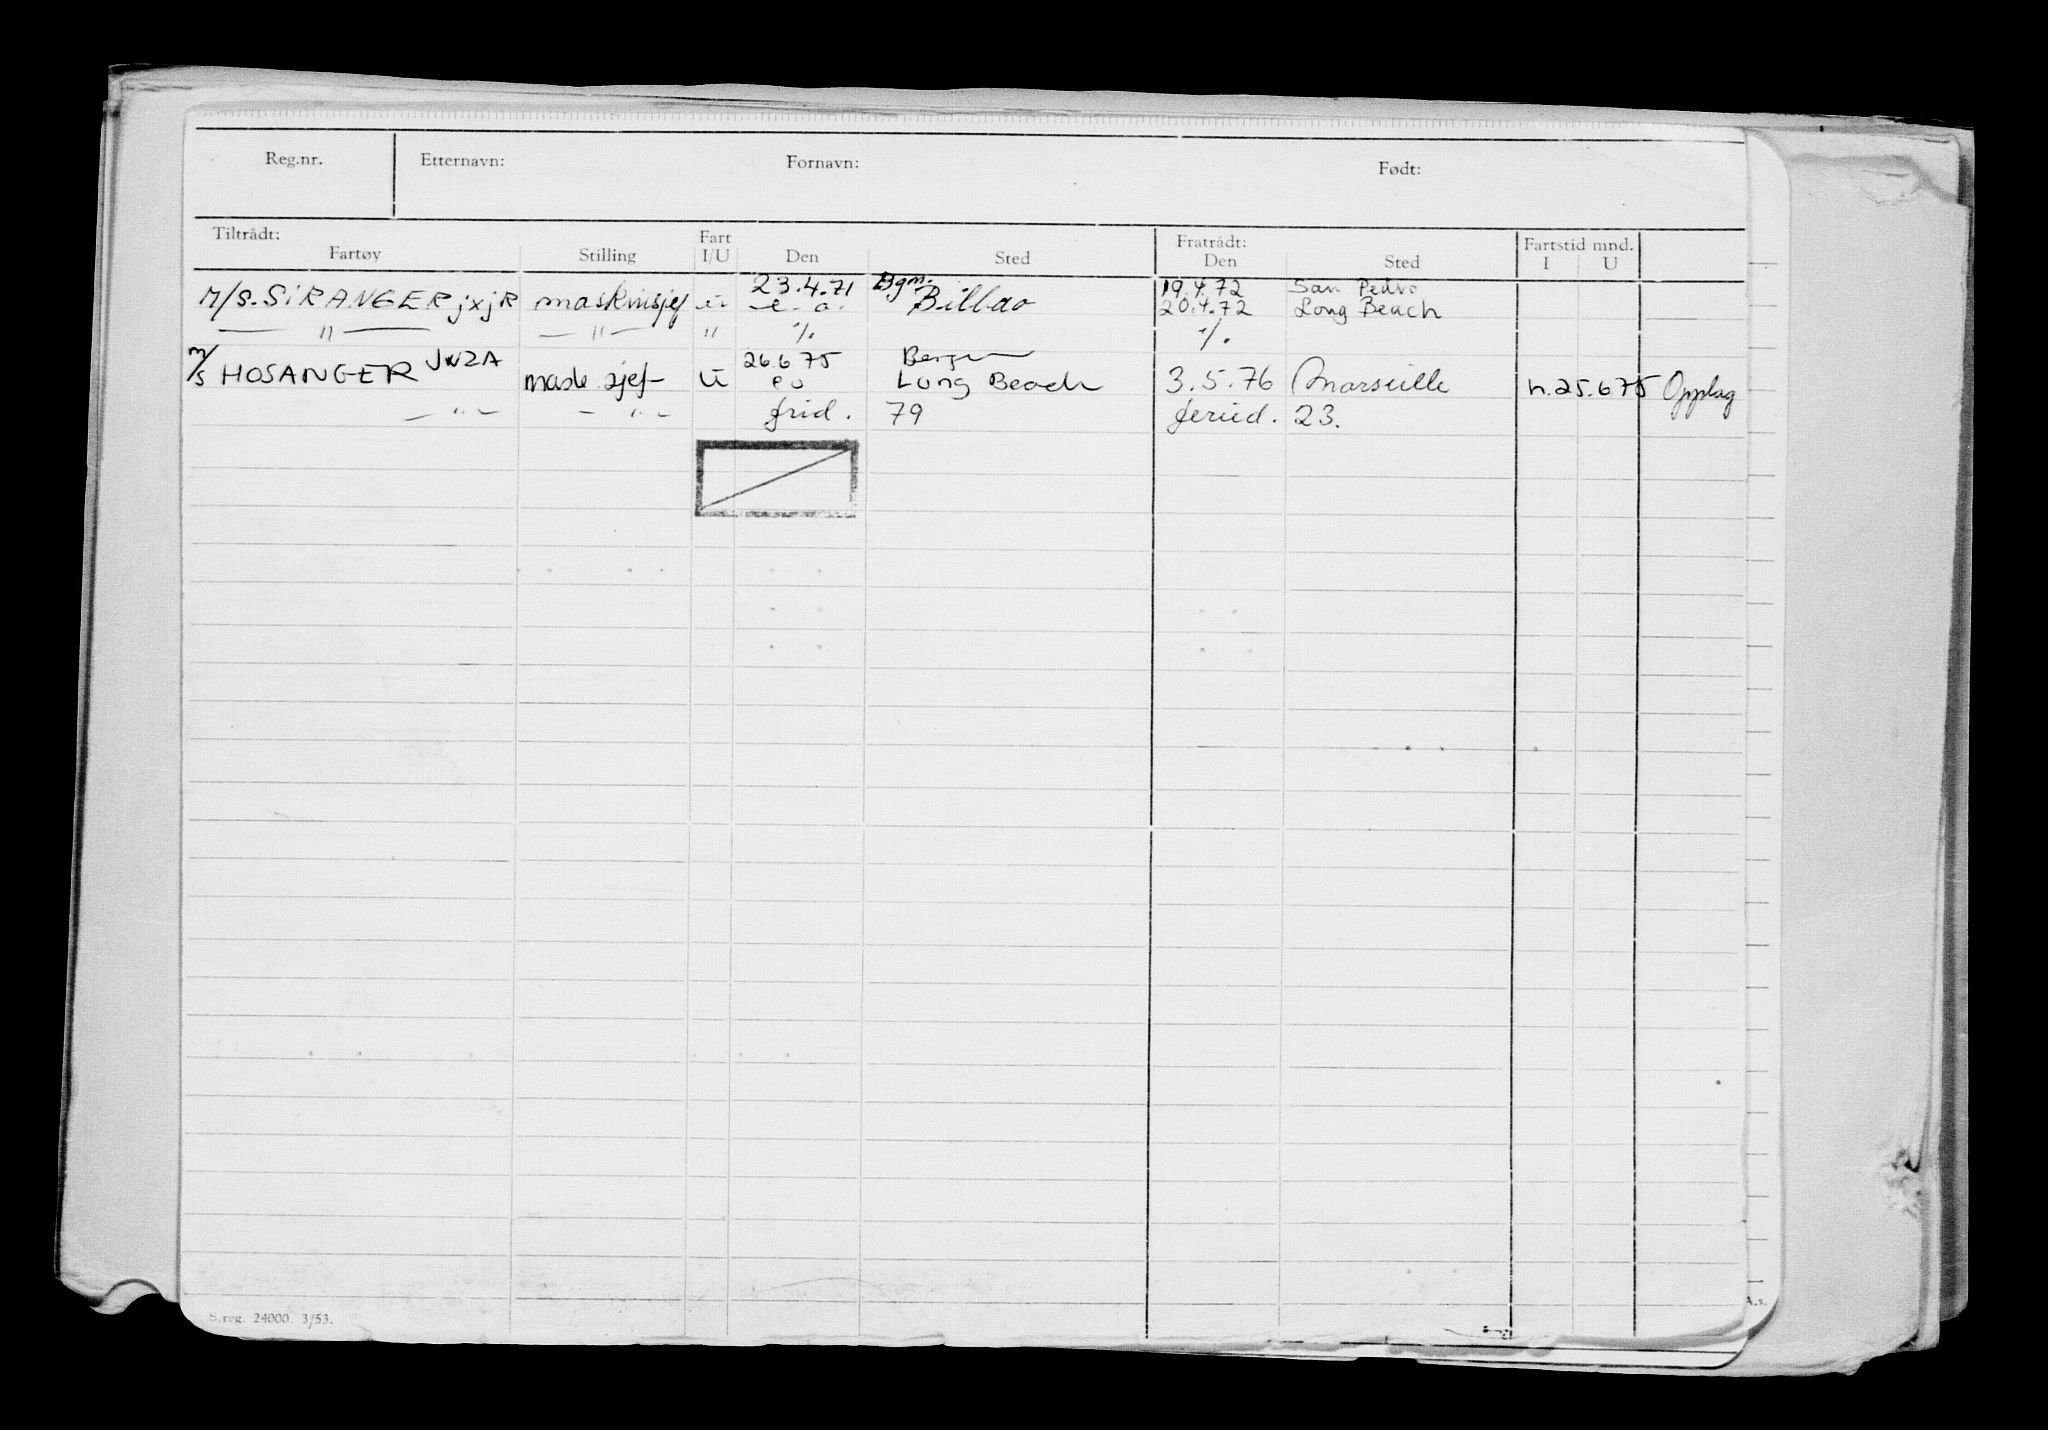 Reg.nr. Etternavn: Fornavn: Født:
Tiltrådt: Fart Fratrådt: Fartstid mnd.
Fartøy Stilling I/U Den Sted Den Sted I U
23.4.71 Bgn. 19.4.72 San Pedro
M/S. SIRANGER jxjR maskinsjef u e.o. Bilbao 20.4.72 Long Beach
— " — — " — " ·/. ·/.
26.6 75 Bergen
M/S HOSANGER JWZA mask sjef u eo Long Beach 3.5.76 Marseille n.25.6.75 Opplag
— " — — " — frid. 79 feried. 23.
S.reg. 24000. 3/53.
A.s.